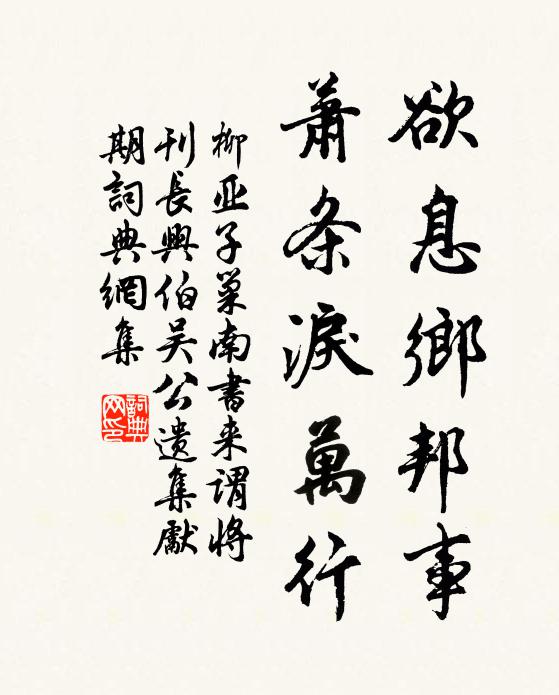 欲息鄉邦事
蕭条淚萬行
柳亚子巢南書来謂將
刊長興伯吴公遗集獻
期詞典網集
詞典
网印